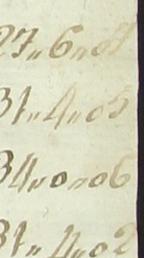 27„6„01
31„4„05
34„0„06
31„4„02